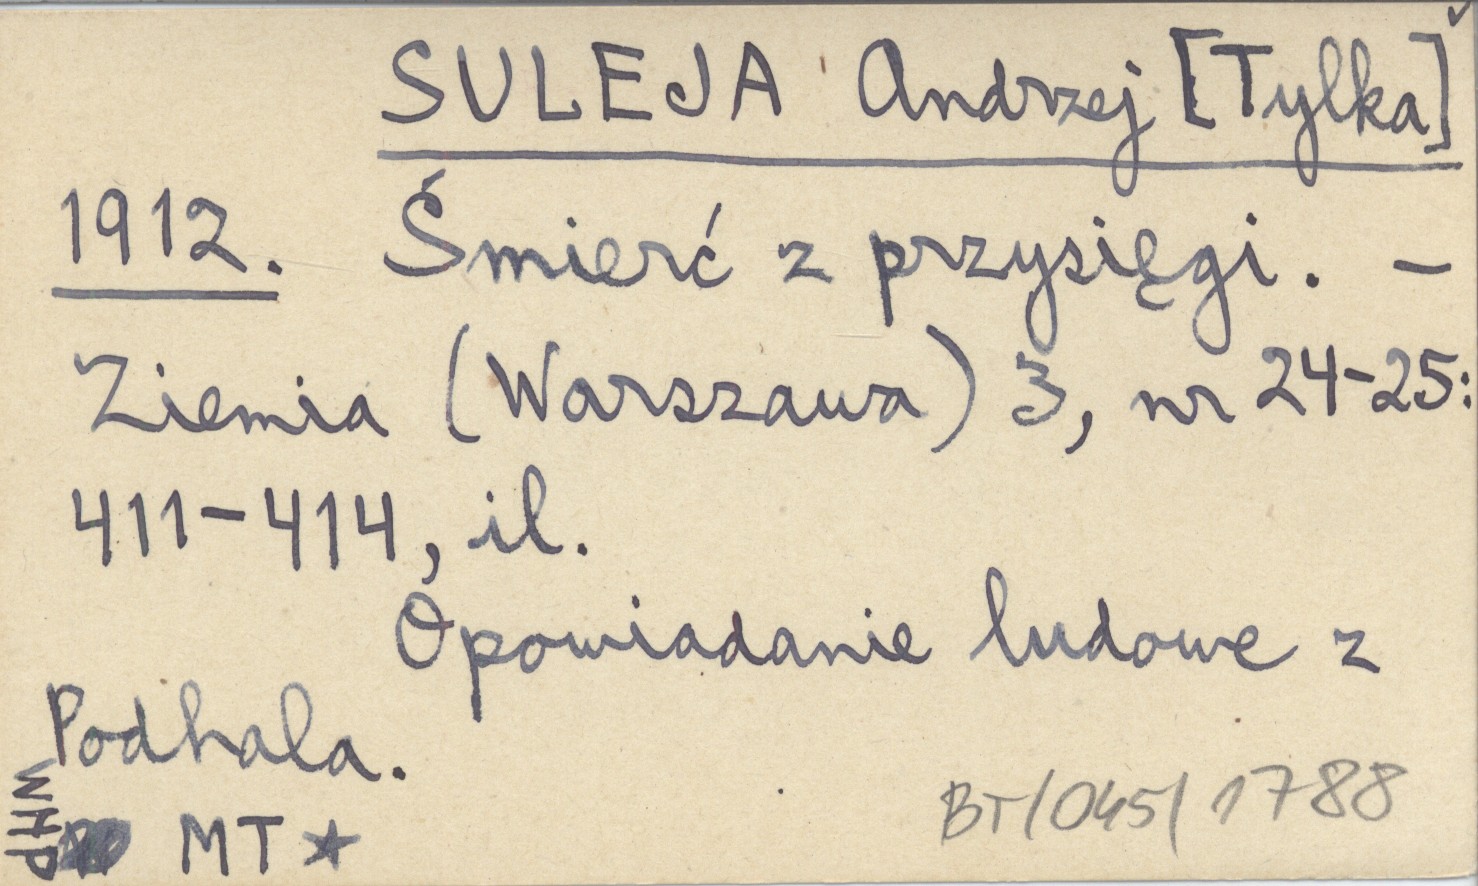 SULEJA Andrzej [Tylka]
1912. Śmierć z przysięgi. –
Ziemia (Warszawa) 3, nr 24-25:
411-414, il.
Opowiadanie ludowe z
Podhala.
WHP
MT ★
BT/045/1788